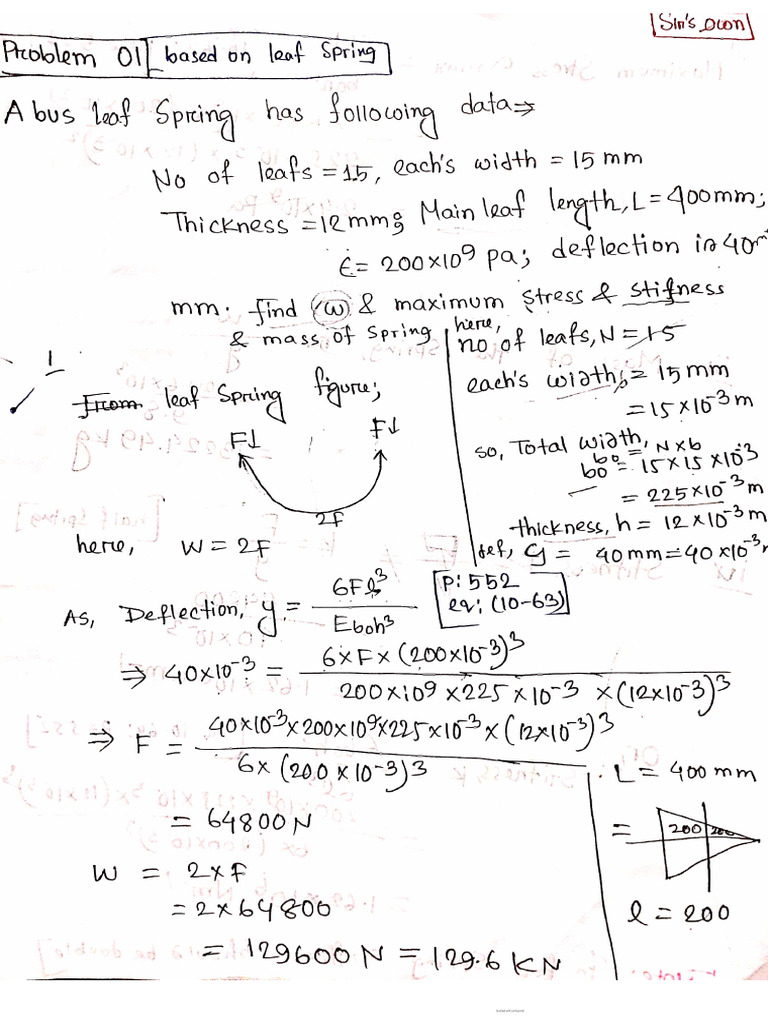 Sir's own
Problem 01 based on leaf Spring
A bus leaf Spring has following data⇒
No of leafs = 15, each's width = 15 mm
Thickness = 12mm; Main leaf length, L = 400mm;
E = 200×10⁹ pa; deflection is 40
mm. find (w) & maximum stress & stifness
& mass of spring
From leaf Spring figure;
F↓ F↓
2F
here, W = 2F
here,
no of leafs, N = 15
each's width, = 15 mm
= 15×10⁻³ m
so, Total width,
bo = N×b
bo = 15×15×10⁻³
= 225×10⁻³ m
thickness, h = 12×10⁻³ m
def, y = 40mm = 40×10⁻³
As, Deflection, y = 6Fl³ / Eboh³
P: 552
eq: (10-63)
⇒ 40×10⁻³ = 6×F×(200×10⁻³)³ / 200×10⁹×225×10⁻³×(12×10⁻³)³
⇒ F = 40×10⁻³×200×10⁹×225×10⁻³×(12×10⁻³)³ / 6×(200×10⁻³)³
= 64800N
W = 2×F
= 2×64800
= 129600N = 129.6 KN
L = 400 mm
= 200 200
l = 200